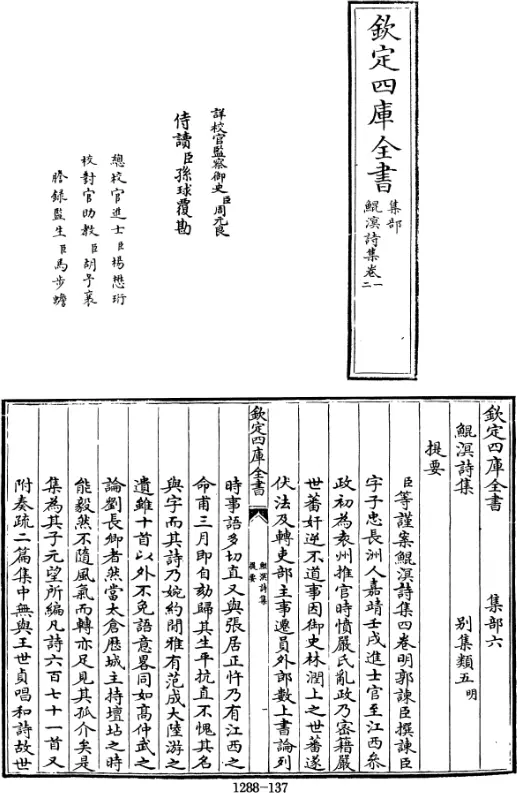 欽定四庫全書
集部
鯤溟詩集卷一
二
詳校官監察御史臣周元良
侍讀臣孫球覆勘
總校官進士臣楊懋珩
校對官助教臣胡予襄
謄錄監生臣馬步蟾
欽定四庫全書 集部六
鯤溟詩集 別集類五明
提要
臣等謹案鯤溟詩集四卷明郭諫臣撰諫臣
字子忠長洲人嘉靖壬戌進士官至江西叅
政初為袁州推官時憤嚴氏亂政乃密籍嚴
世蕃奸逆不道事因御史林潤上之世蕃遂
伏法及轉吏部主事遷員外郎數上書論列
欽定四庫全書
鯤溟詩集
提要
時事語多切直又與張居正忤乃有江西之
命甫三月即自劾歸其生平抗直不愧其名
與字而其詩乃婉約閒雅有范成大陸游之
遺雖十首以外不免語意畧同如高仲武之
論劉長卿者然當太倉歷城主持壇坫之時
能毅然不隨風氣而轉亦足見其孤介矣是
集為其子元望所編凡詩六百七十一首又
附奏疏二篇集中無與王世貞唱和詩故世
1288-137